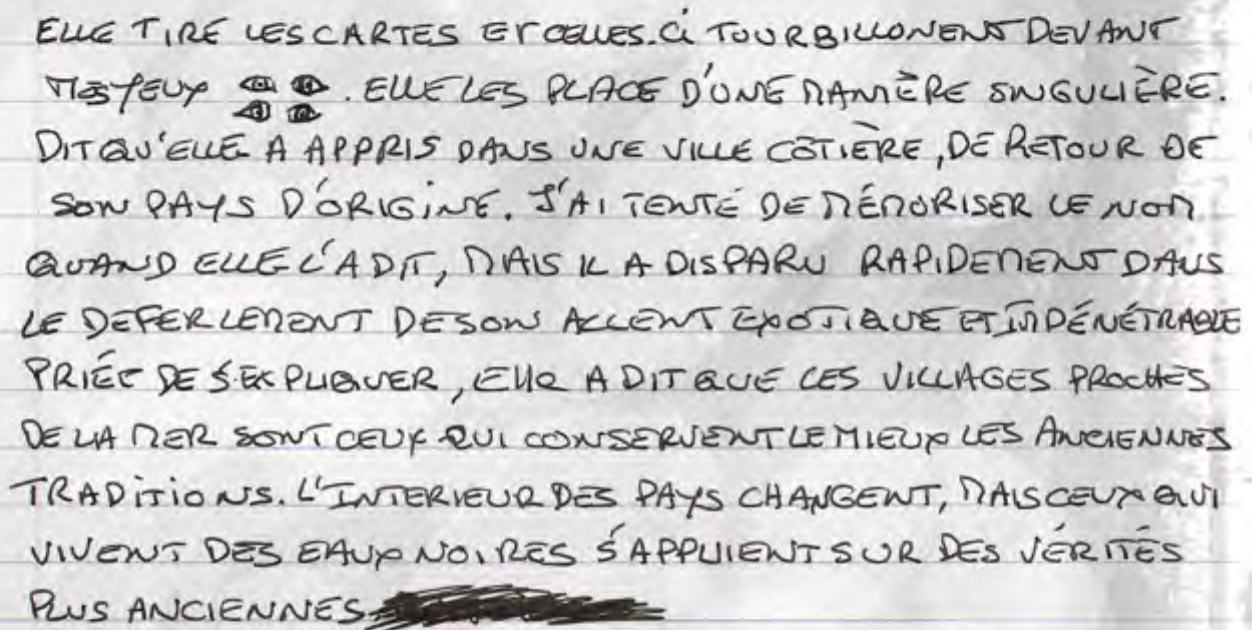 ELLE TIRE LES CARTES ET CELLES.CI TOURBILLONENT DEVANT
MES YEUX . ELLE LES PLACE D'UNE MANIÈRE SINGULIÈRE.
DIT QU'ELLE A APPRIS DANS UNE VILLE COTIÈRE, DE RETOUR DE
SON PAYS D'ORIGINE. J'AI TENTÉ DE MÉMORISER LE NOM
QUAND ELLE L'A DIT, MAIS IL A DISPARU RAPIDEMENT DANS
LE DEFERLEMENT DE SON ACCENT EXOTIQUE ET IMPÉNÉTRABLE
PRIÉE DE S'EXPLIQUER, ELLE A DIT QUE LES VILLAGES PROCHES
DE LA MER SONT CEUX QUI CONSERVENT LE MIEUX LES ANCIENNES
TRADITIONS. L'INTERIEUR DES PAYS CHANGENT, MAIS CEUX QUI
VIVENT DES EAUX NOIRES S'APPUIENT SUR DES VÉRITÉS
PLUS ANCIENNES